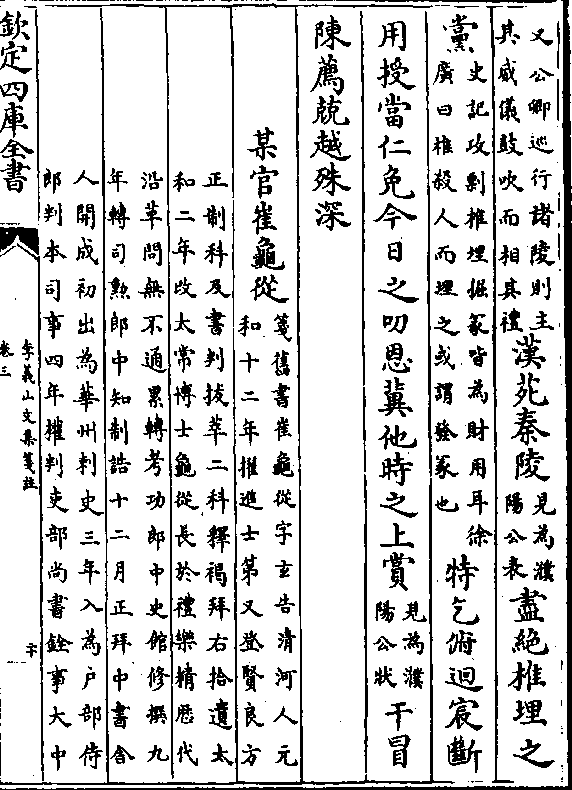 又公卿巡行諸陵則主
其威儀鼓吹而相其禮
漢苑秦陵
見為濮
陽公表
盡絕椎埋之
黨
史記攻剽椎埋掘冢皆為財用耳徐
廣曰椎殺人而埋之或謂發冢也
特乞俯迴宸斷
用授當仁免今日之叨恩冀他時之上賞
見為濮
陽公狀
干冒
陳薦兢越殊深
某官崔龜從
箋舊書崔龜從字玄告清河人元
和十二年擢進士第又登賢良方
正制科及書判拔萃二科釋褐拜右拾遺太
和二年改太常博士龜從長於禮樂精歷代
沿革問無不通累轉考功郎中史館修撰九
年轉司勲郎中知制誥十二月正拜中書舍
人開成初出為華州刺史三年入為戶部侍
郎判本司事四年權判吏部尚書銓事大中
欽定四庫全書
李義山文集箋註
卷三